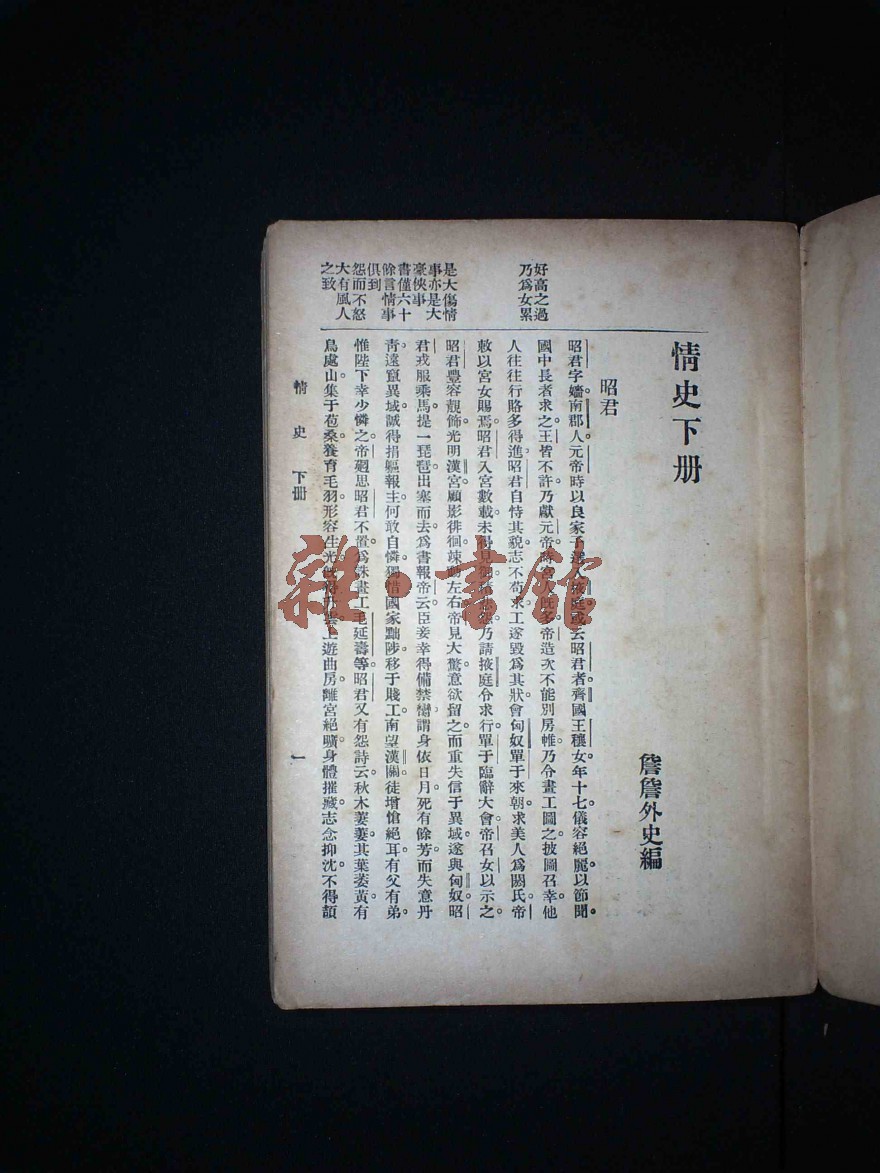 情史下册
詹詹外史編
昭君
好高之過
乃爲女累
昭君字嬙南郡人。元帝時以良家子選入掖庭。或云昭君者。齊國王穰女。年十七。儀容絕麗。以節聞。
國中長者求之。王皆不許。乃獻元帝。時宮人既多。帝造次不能別房帷。乃令畫工圖之。披圖召幸。他
人往往行賂多得進。昭君自恃其貌。志不苟求。工遂毀爲其狀。會匈奴單于來朝。求美人爲閼氏。帝
敕以宮女賜焉。昭君入宮數載。未得見御。積悲怨。乃請掖庭令求行。單于臨辭大會。帝召女以示之。
是大傷情
事亦是大
豪俠事
書僅六十
餘言情事
俱到
怨而不怒
大有風人
之致
昭君豐容靚飾。光明漢宮。顧影徘徊。竦動左右。帝見大驚。意欲留之。而重失信于異域。遂與匈奴。昭
君戎服乘馬。提一琵琶出塞而去。爲書報帝云。臣妾幸得備禁臠。謂身依日月。死有餘芳。而失意丹
青。遠竄異域。誠得捐軀報主。何敢自憐。獨惜國家黜陟。移于賤工。南望漢關。徒增愴絕耳。有父有弟。
惟陛下幸少憐之。帝廻思昭君不置。爲誅畫工毛延壽等。昭君又有怨詩云。秋木萋萋。其葉萎黃。有
鳥處山。集于苞桑。養育毛羽。形容生光。既得升雲。上遊曲房。離宮絕曠。身體摧藏。志念抑沈。不得頡
情史 下册
一
雜·書館